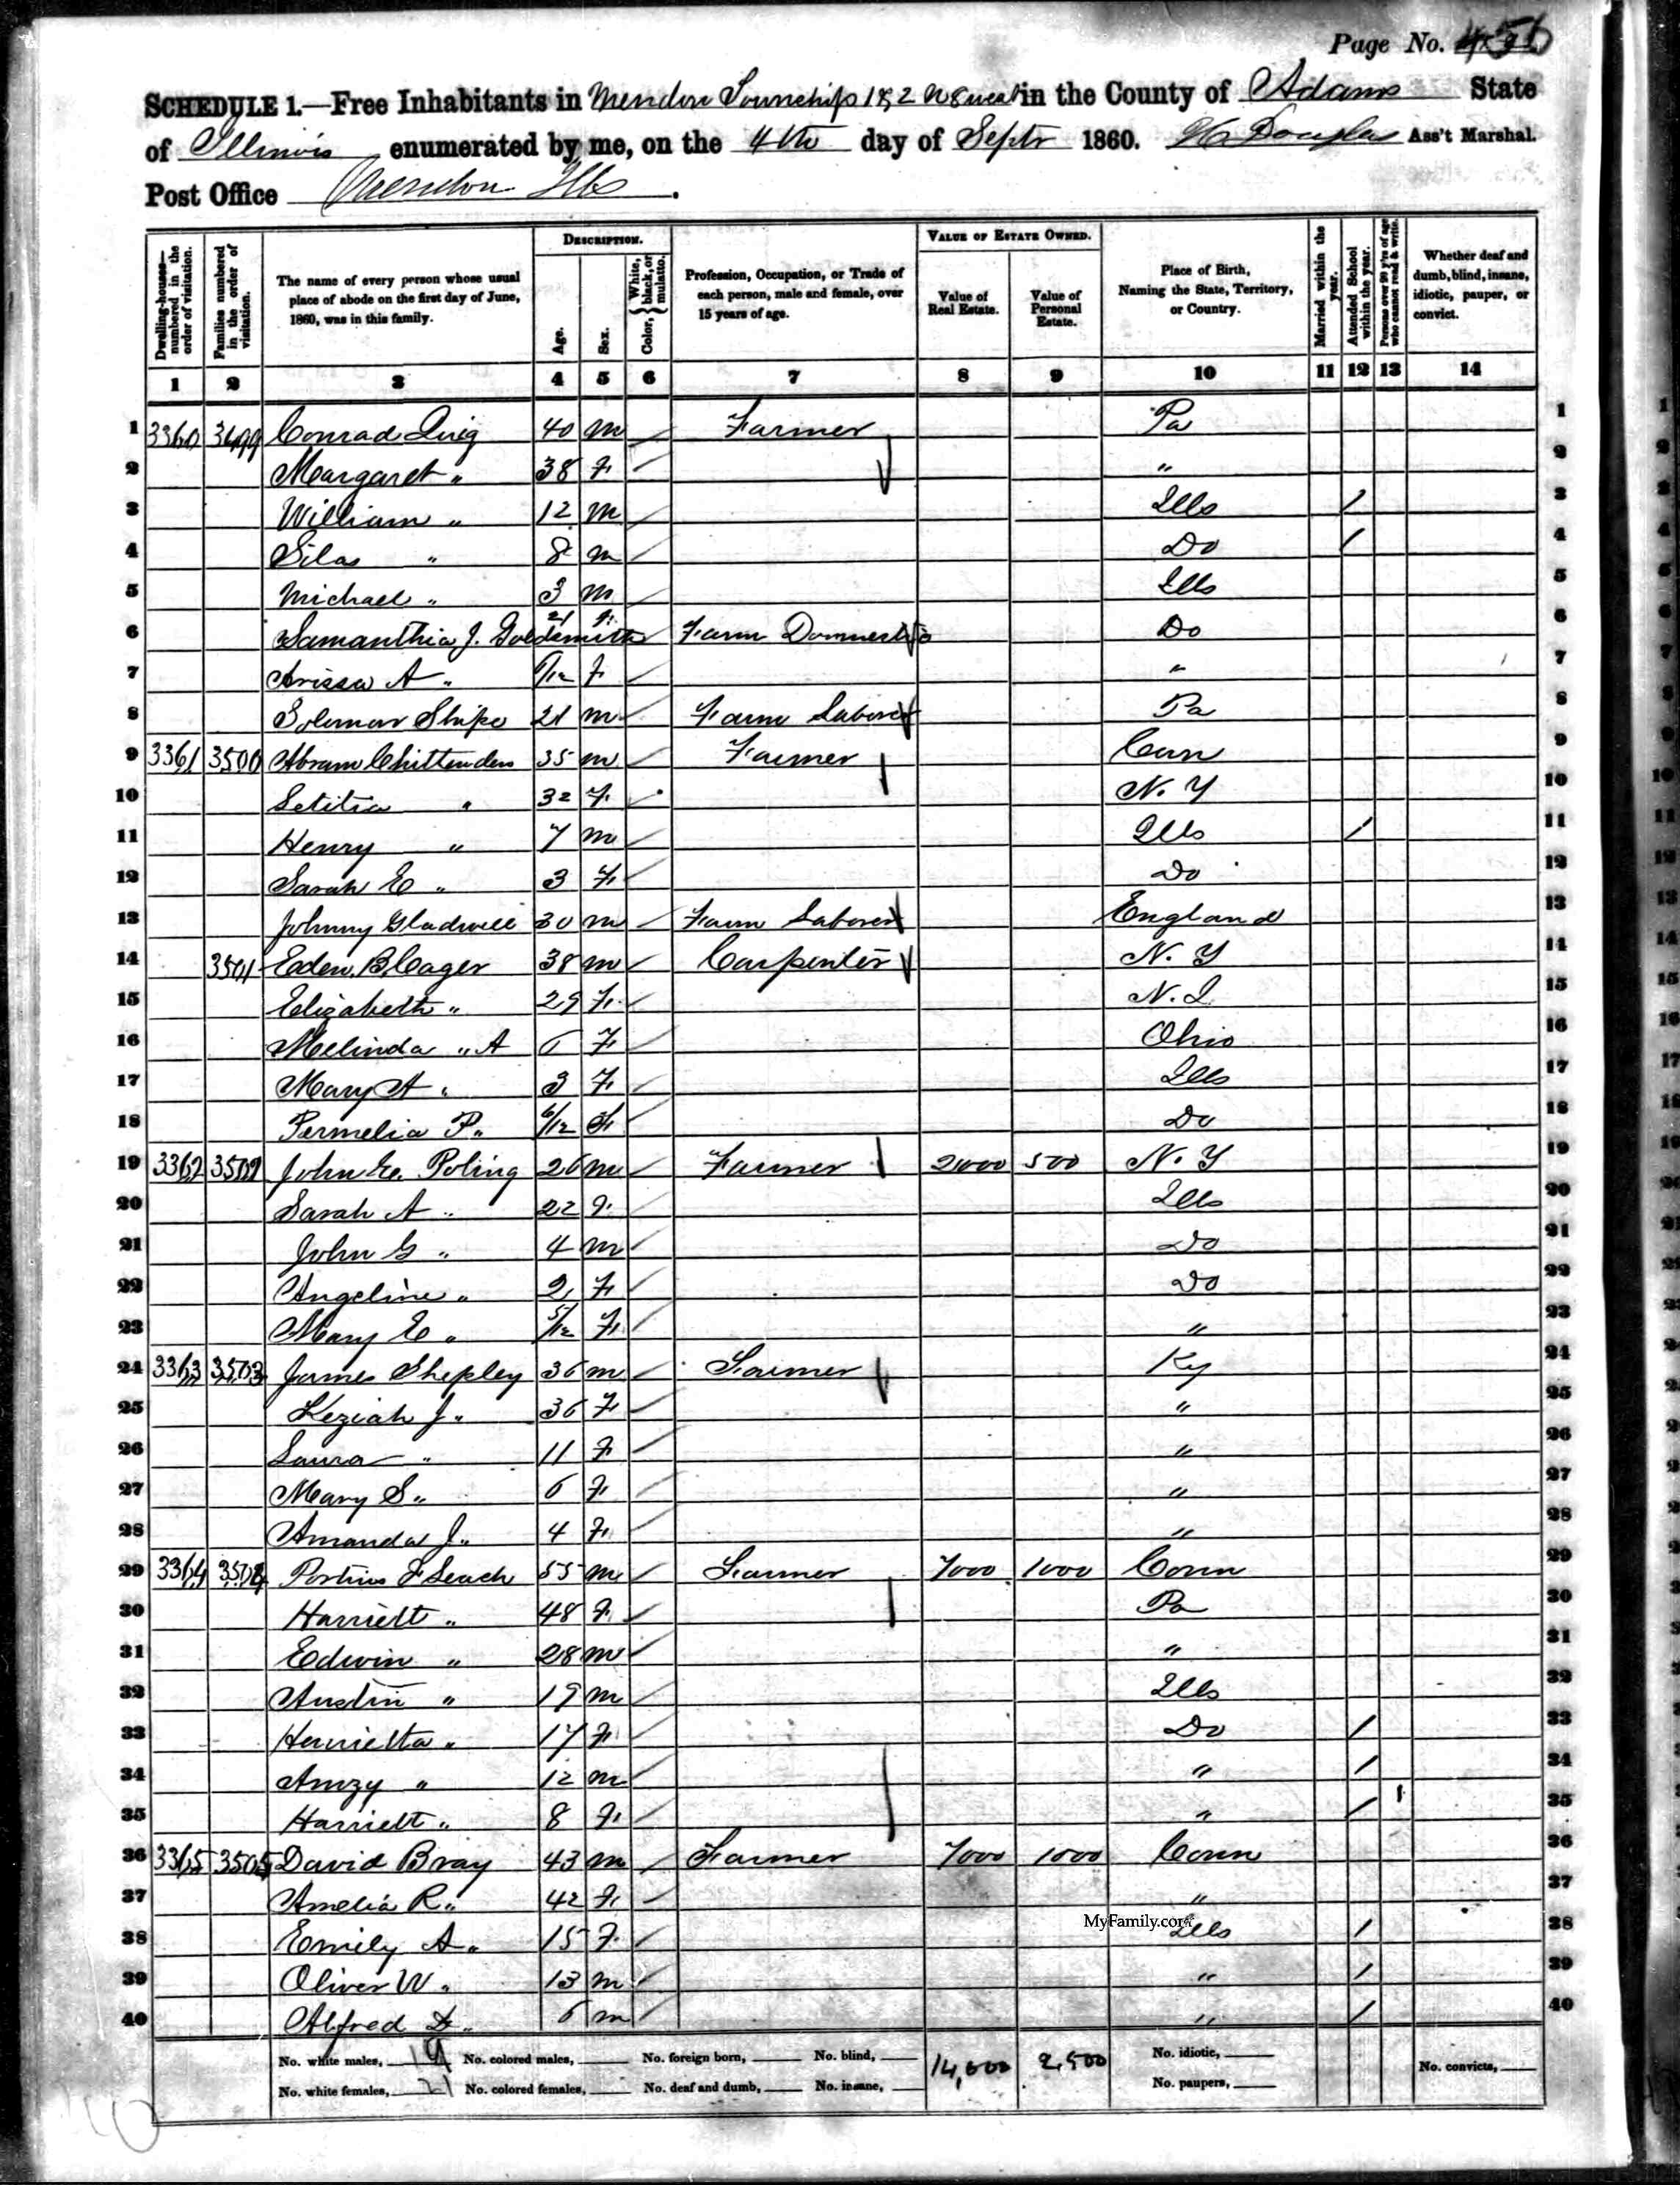 Page No. 456
SCHEDULE 1.—Free Inhabitants in Mendon Townships 1 & 2 N 8 west in the County of Adams State
of Illinois enumerated by me, on the 4th day of Septr 1860. Douglas Ass't Marshal.
Post Office Mendon Ills.
Dwelling-houses—numbered in the order of visitation.
Families numbered in the order of visitation.
The name of every person whose usual place of abode on the first day of June, 1860, was in this family.
DESCRIPTION.
Age.
Sex.
Color, { White, black, or mulatto.
Profession, Occupation, or Trade of each person, male and female, over 15 years of age.
VALUE OF ESTATE OWNED.
Value of Real Estate.
Value of Personal Estate.
Place of Birth, Naming the State, Territory, or Country.
Married within the year.
Attended School within the year.
Persons over 20 y'rs of age who cannot read & write.
Whether deaf and dumb, blind, insane, idiotic, pauper, or convict.
1 2 3 4 5 6 7 8 9 10 11 12 13 14
1 3360 3499 Conrad Quig 40 m / Farmer Pa 1
2 Margaret " 38 F / " 2
3 William " 12 m / Ills / 3
4 Silas " 8 m / Do / 4
5 Michael " 3 m / Ills 5
6 Samanthia J. Goldsmith 21 F / Farm Domestic Do 6
7 Arissa A " 6/12 F / " 7
8 Soloman Shipe 21 m / Farm Laborer Pa 8
9 3361 3500 Abram Chittenden 35 m / Farmer Conn 9
10 Letitia " 32 F / N. Y 10
11 Henry " 7 m / Ills / 11
12 Sarah E " 3 F / Do 12
13 Johnny Gladwell 30 m / Farm Laborer England 13
14 3501 Eden B Cager 38 m / Carpenter N. Y 14
15 Elizabeth " 29 F / N. J. 15
16 Melinda " A 6 F / Ohio 16
17 Mary A " 3 F / Ills 17
18 Permelia P. " 6/12 F / Do 18
19 3362 3502 John Poling 26 m / Farmer 2000 500 N. Y 19
20 Sarah A " 22 F / Ills 20
21 John G " 4 m / Do 21
22 Angeline " 2 F / Do 22
23 Mary E " 5/12 F / " 23
24 3363 3503 James Shepley 36 m / Farmer Ky 24
25 Keziah J " 36 F / " 25
26 Laura " 11 F / " 26
27 Mary S " 6 F / " 27
28 Amanda J " 4 F / " 28
29 3364 3504 Portius F Leach 55 m / Farmer 7000 1000 Conn 29
30 Harriett " 48 F / Pa 30
31 Edwin " 28 m / " 31
32 Austin " 19 m / Ills 32
33 Henrietta " 17 F / Do / 33
34 Amzy " 12 m / " / 34
35 Harriett " 8 F / " / 35
36 3365 3505 David Bray 43 m / Farmer 7000 1000 Conn 36
37 Amelia R. " 42 F / " 37
38 Emily A " 15 F / MyFamily.com Ills / 38
39 Oliver W " 13 m / " / 39
40 Alfred D " 6 m / " / 40
No. white males, 19 No. colored males, No. foreign born, No. blind, 14,000 2,500 No. idiotic, No. convicts,
No. white females, 21 No. colored females, No. deaf and dumb, No. insane, No. paupers,